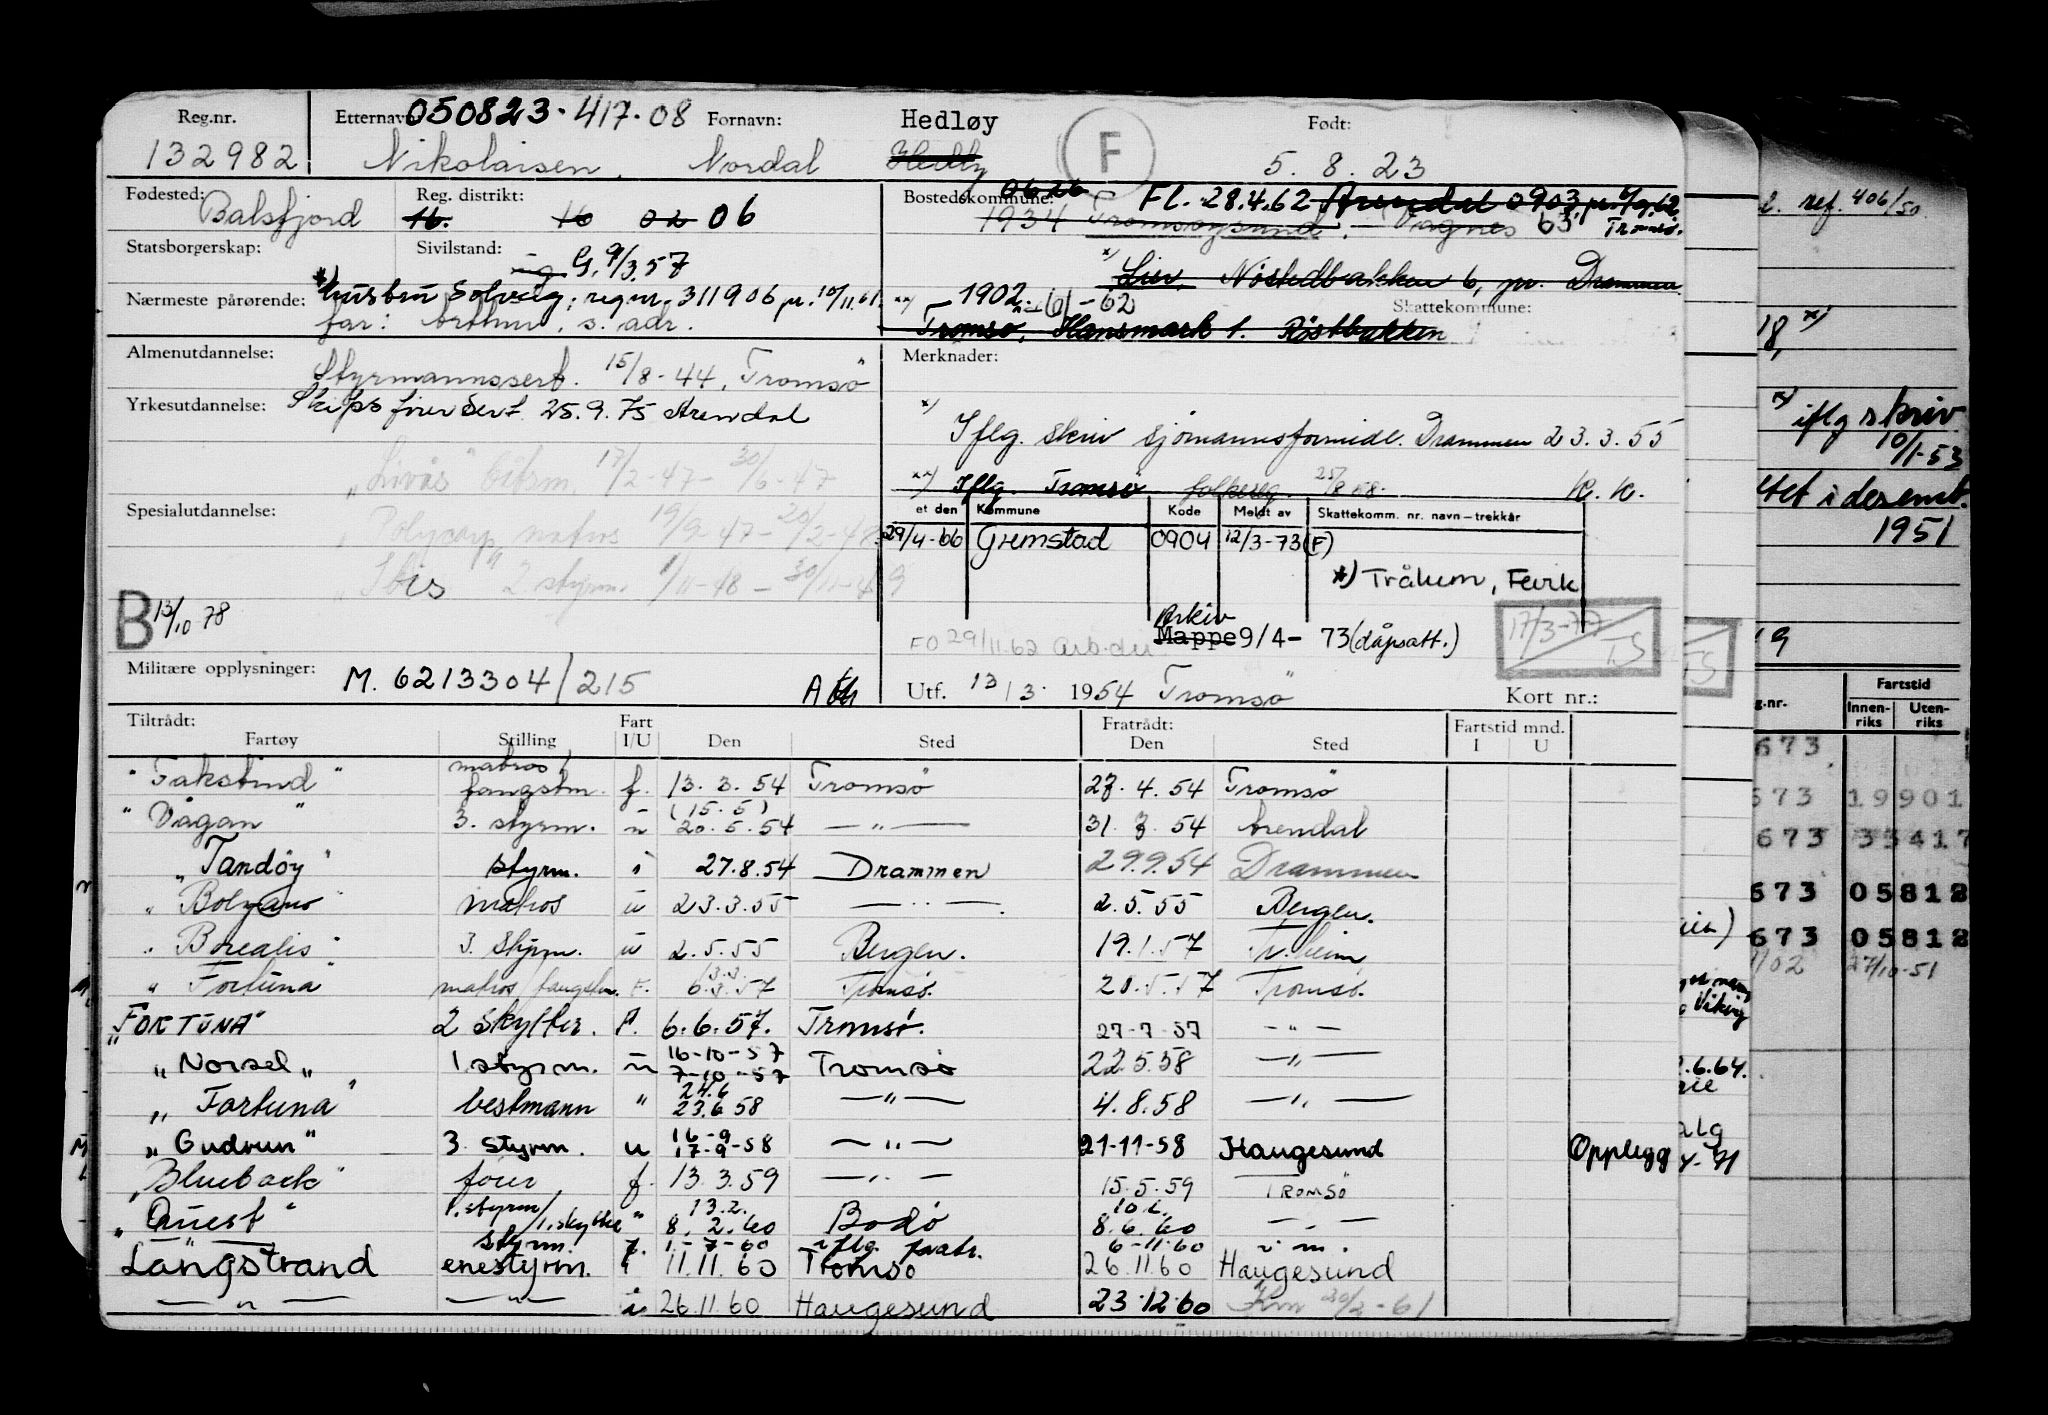 Reg.nr. Etternavn 050823-417-08 Fornavn: Hedløy F Født:
132982 Nikolaisen, Nordal 5.8.23
Fødested: Reg. distrikt: Bostedskommune: 0626 Fl. 28.4.62 Arendal 0903 pr. 6/9.62
Balsfjord 16. 16 02 06 1934 Tromsøysund. Vagnes 63 Tromsø.
Statsborgerskap: Sivilstand: ug G. 9/3.57 *) Lier, Nøstedbakken 6, pr. Drammen
Nærmeste pårørende: *) hustru Solveig: reg.nr. 311906 pr. 10/11.61 **) 1902 - 61 - 62 Skattekommune:
far: Arthur, s. adr. Tromsø, Hansmark 1. Røstbakken
Almenutdannelse: Merknader:
Styrmannssert. 15/8-44, Tromsø
Yrkesutdannelse: Skipsførersert. 25.9.75 Arendal
*) Iflg. skriv sjømannsformidl. Drammen 23.3.55
"Livås" båtsm. 17/2-47 - 30/6-47
**) Iflg. Tromsø folkereg. 25/8 58. K. K.
Spesialutdannelse: et den Kommune Kode Meldt av Skattekomm. nr. navn - trekkår
"Polycarp" matros 19/9-47 - 20/2-48 29/4-66 Grimstad 0904 12/3-73 (F)
"Ibis" 2 styrm. 1/11-48 - 30/11-49 *) Trålum, Fevik
B 13/10 78 Arkiv
FO 29/11.62 Arb.dir Mappe 9/4-73 (dåpsatt.) 17/3-77 TS
TS
Militære opplysninger: M. 6213304/215 Utf. 13/3. 1954 Tromsø Kort nr.:
Tiltrådt: Fart Fratrådt: Fartstid mnd.
Fartøy Stilling I/U Den Sted Den Sted I U
"Fakstind" matros/fangstm. f. 13.3.54 Tromsø 27.4.54 Tromsø
"Vågan" 3. styrm. u (15.5) 20.5.54 —"— 31.3.54 Arendal
"Tandøy" styrm. i 27.8.54 Drammen 29.9.54 Drammen
"Bolzano" matros u 23.3.55 —"— 2.5.55 Bergen.
"Borealis" 3. styrm. u 2.5.55 Bergen. 19.1.57 Tr.heim
"Fortuna" matros/fangstm. F. 3.3. 6.3.57 Tromsø. 20.5.57 Tromsø.
"FORTUNA" 2 skytter. F. 6.6.57. Tromsø. 27-7-57 —"—
"Norsel" 1. styrm. u 16-10-57 7-10-57 Tromsø 22.5.58 —"—
"Fortuna" bestmann " 24.6 23.6.58 —"— 4.8.58 —"—
"Gudrun" 3. styrm. u 16-9 17-9-58 —"— 21-11-58 Haugesund Opplegg
"Blueback" fører f. 13.3.59 —"— 15.5.59 TROMSØ
"Quest" 1. styrm/1. skytter " 13.2. 8.2.60 Bodø 10.6. 8.6.60 —"—
—"— styrm. f. 1.-7-60 iflg. fratr. 6-11.60 —"—
Langstrand enestyrm. i 11.11.60 Tromsø 26.11.60 Haugesund
—"— —"— i 26.11.60 Haugesund 23.12.60 Km 20/2-61
ref. 406/50
18, *)
*) iflg skriv
10/1-53
i desemb.
1951
19
Fartstid
g.nr. Innen-riks Uten-riks
673
673 19901
673 33417
673 05812
673 05812
1/02 27/10-51
Viking
2.6.64.